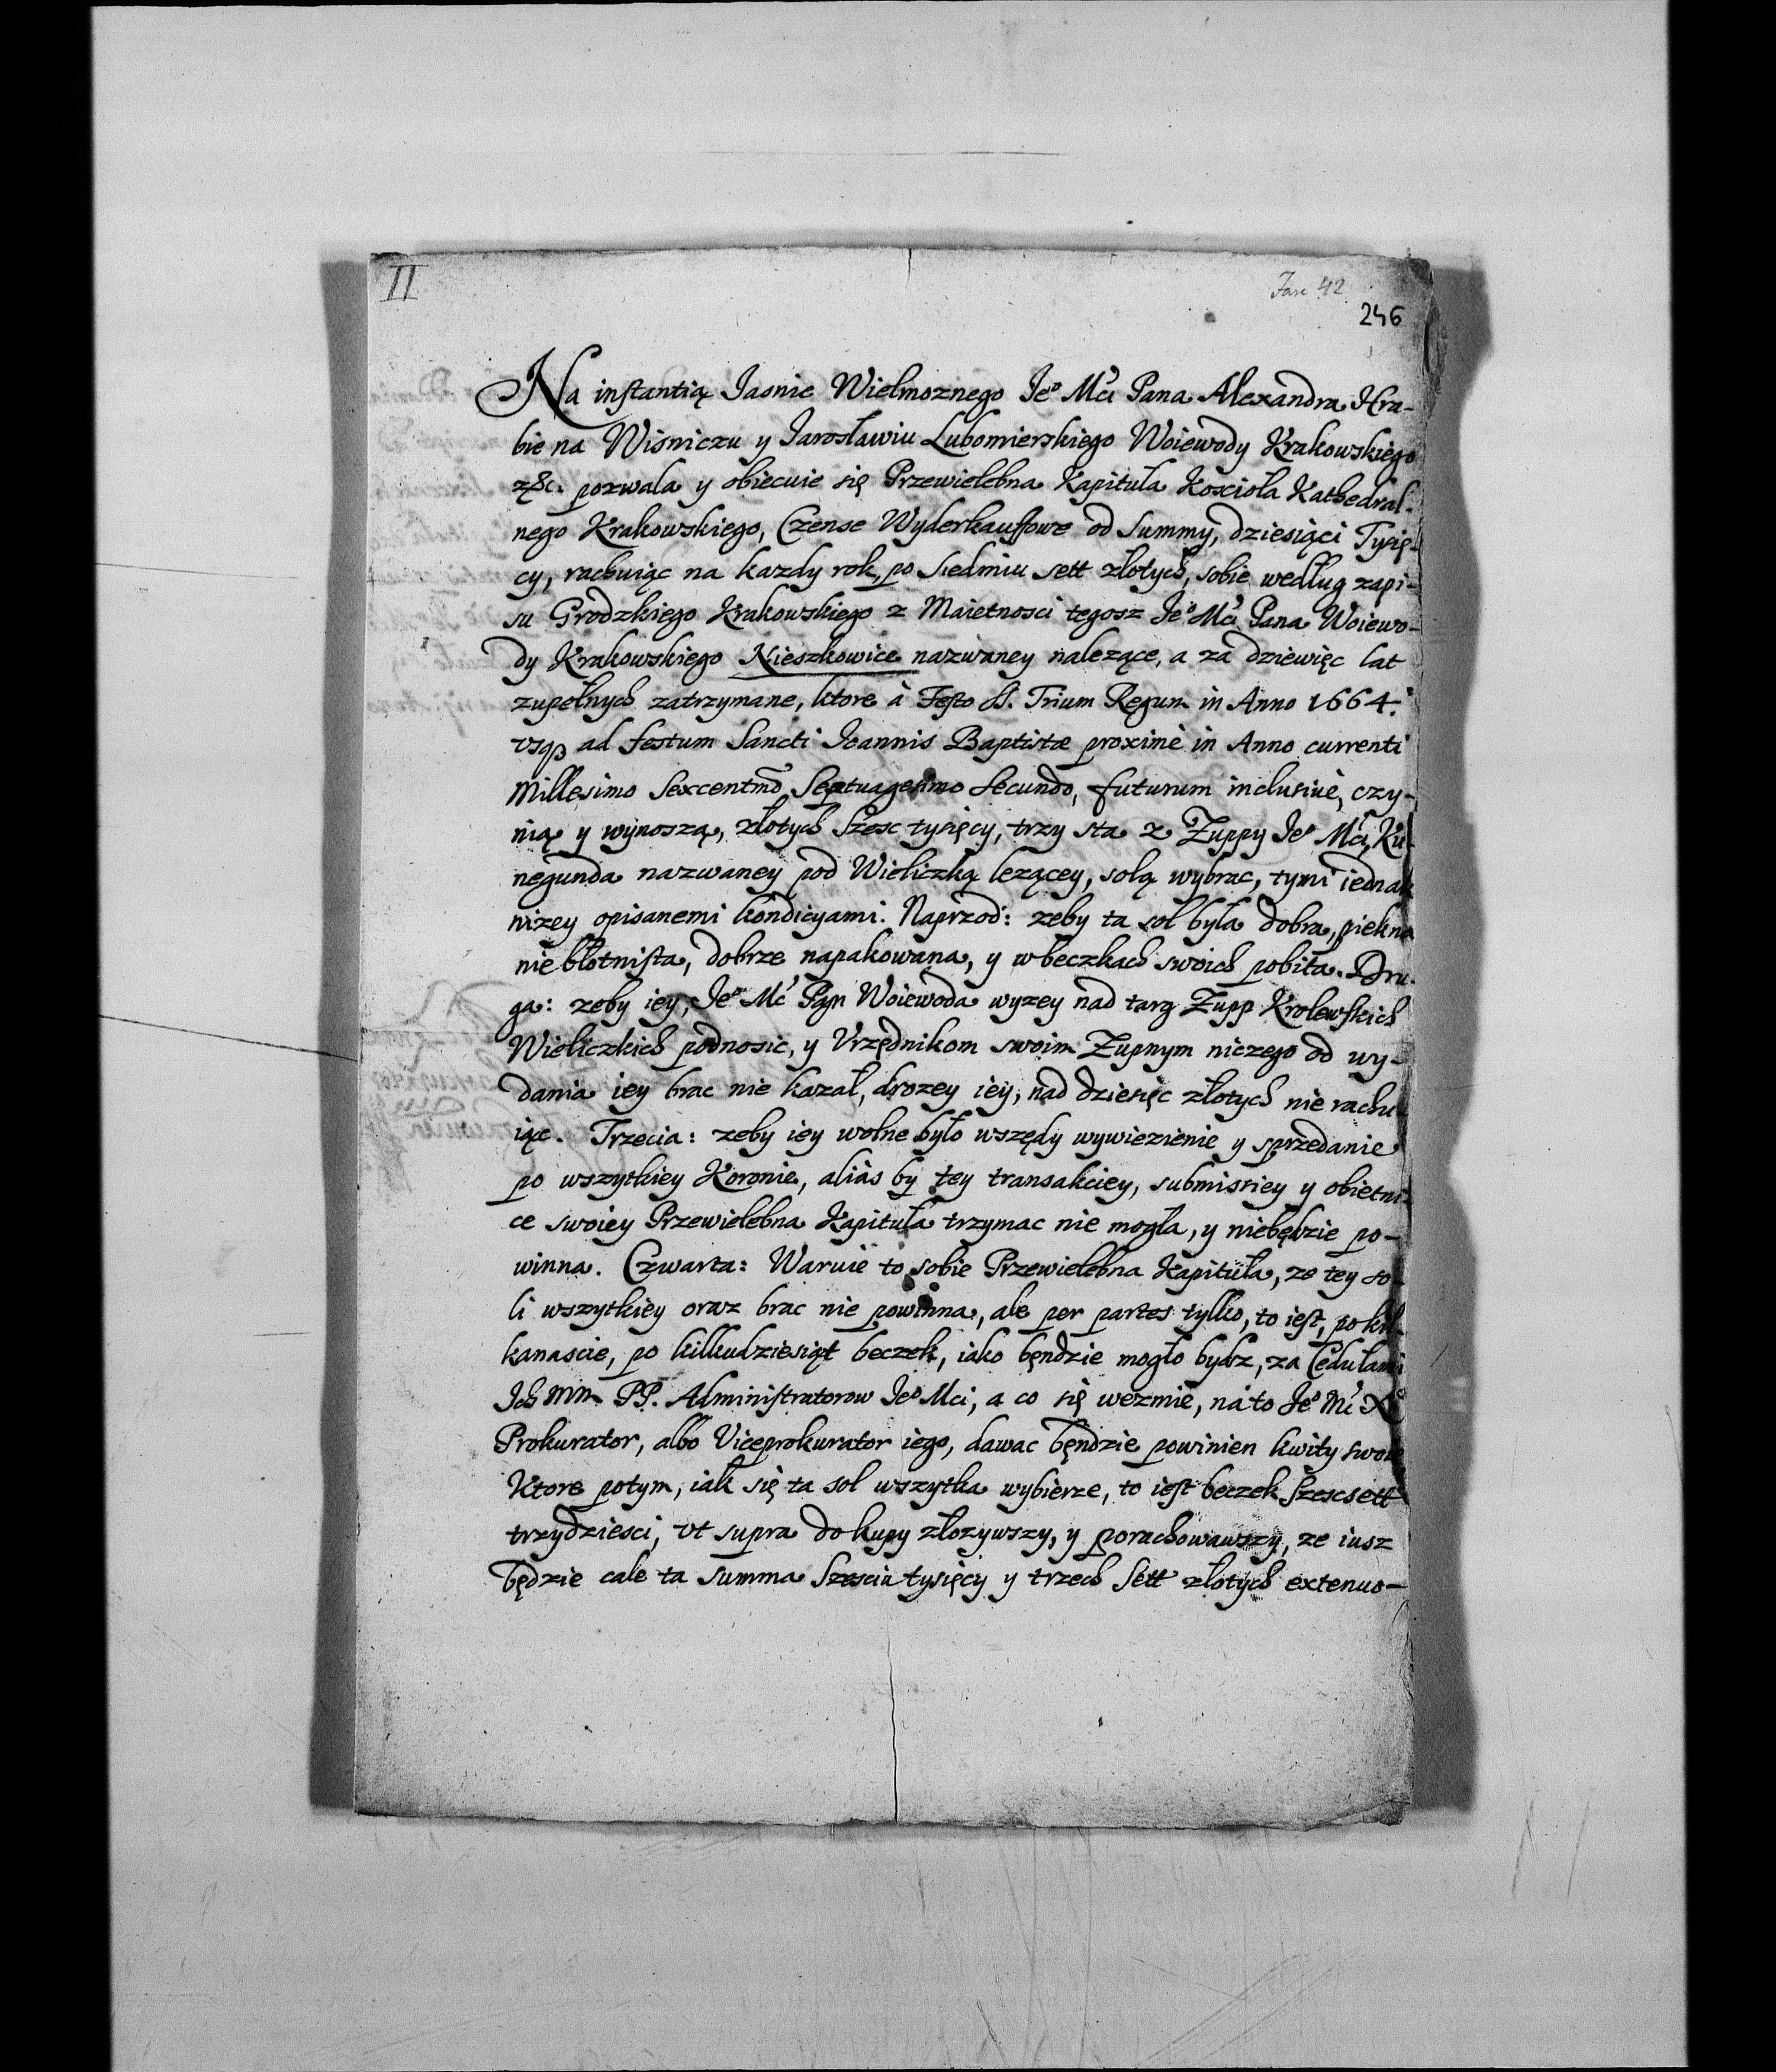 II
Fasc 42
246
Na instantią Jasnie Wielmoznego Jeº Mći Pana Alexandra Hra-
bie na Wiśniczu y Jarosławiu Lubomierskiego Woiewody Krakowskiego
z&c. pozwala y obiecuie się Przewielebna Kapituła Koscioła Kathedral-
nego Krakowskiego, Czense Wyderkauffowe od Summy, dziesiąci Tysię-
cy, rachuiąc na kazdy rok, po siedmiu sett złotych, sobie według zapi-
su Grodzkiego Krakowskiego z Maietnosci tegosz Jeº Mći Pana Woiewo-
dy Krakowskiego Nieszkowice nazwaney nalezące, a za dziewięc lat
zupełnych zatrzymane, ktore à Festo SS. Trium Regum in Anno 1664.
vsq3 ad festum Sancti Joannis Baptistæ proximè in Anno currenti
Millesimo Sexcentmo Septuagesimo Secundo, futurum inclusiuè, czy-
nią y wynoszą, złotych szesc tysięcy, trzy sta z Zuppy Jeº Mći, Ku-
negunda nazwaney pod Wieliczką lezącey, solą wybrac, tymi iednak
nizey opisanemi kondicyami. Naprzod: zeby ta sol była dobra, piekna
nie błotnista, dobrze napakowana, y w beczkach swoich pobita. Dru-
ga: zeby iey, Jeº Mć Pan Woiewoda wyzey nad targ Zupp Krolewskich
Wieliczkich podnosic, y Vrzędnikom swoim Zupnym niczego od wy-
dania iey brac nie kazał, drozey iey, nad dziesięc złotych nie rachu-
iąc. Trzecia: zeby iey wolne było wszędy wywiezienie y sprzedanie
po wszytkiey Koronie, aliàs by tey transakciey, submissiey y obietni-
ce swoiey Przewielebna Kapituła trzymac nie mogła, y niebędzie po-
winna. Czwarta: Waruie to sobie Przewielebna Kapituła, ze tey so-
li wszytkiey oraz brac nie powinna, ale per partes tylko, to iest, po kil-
kanascie, po kilkudziesiąt beczek, iako będzie mogło bydz, za Cedułami
Ich Mm. PP. Administratorow Jeº Mci, a co się wezmie, na to Jeº Mć X
Prokurator, albo Viceprokurator iego, dawac będzie powinien kwity swoie
Ktore potym, iak się ta sol wszytka wybierze, to iest beczek szescsett
trzydziesci, vt supra do kupy złozywszy, y porachowawszy, ze iusz
będzie cale ta summa szesciu tysięcy y trzech sett złotych extenuo-